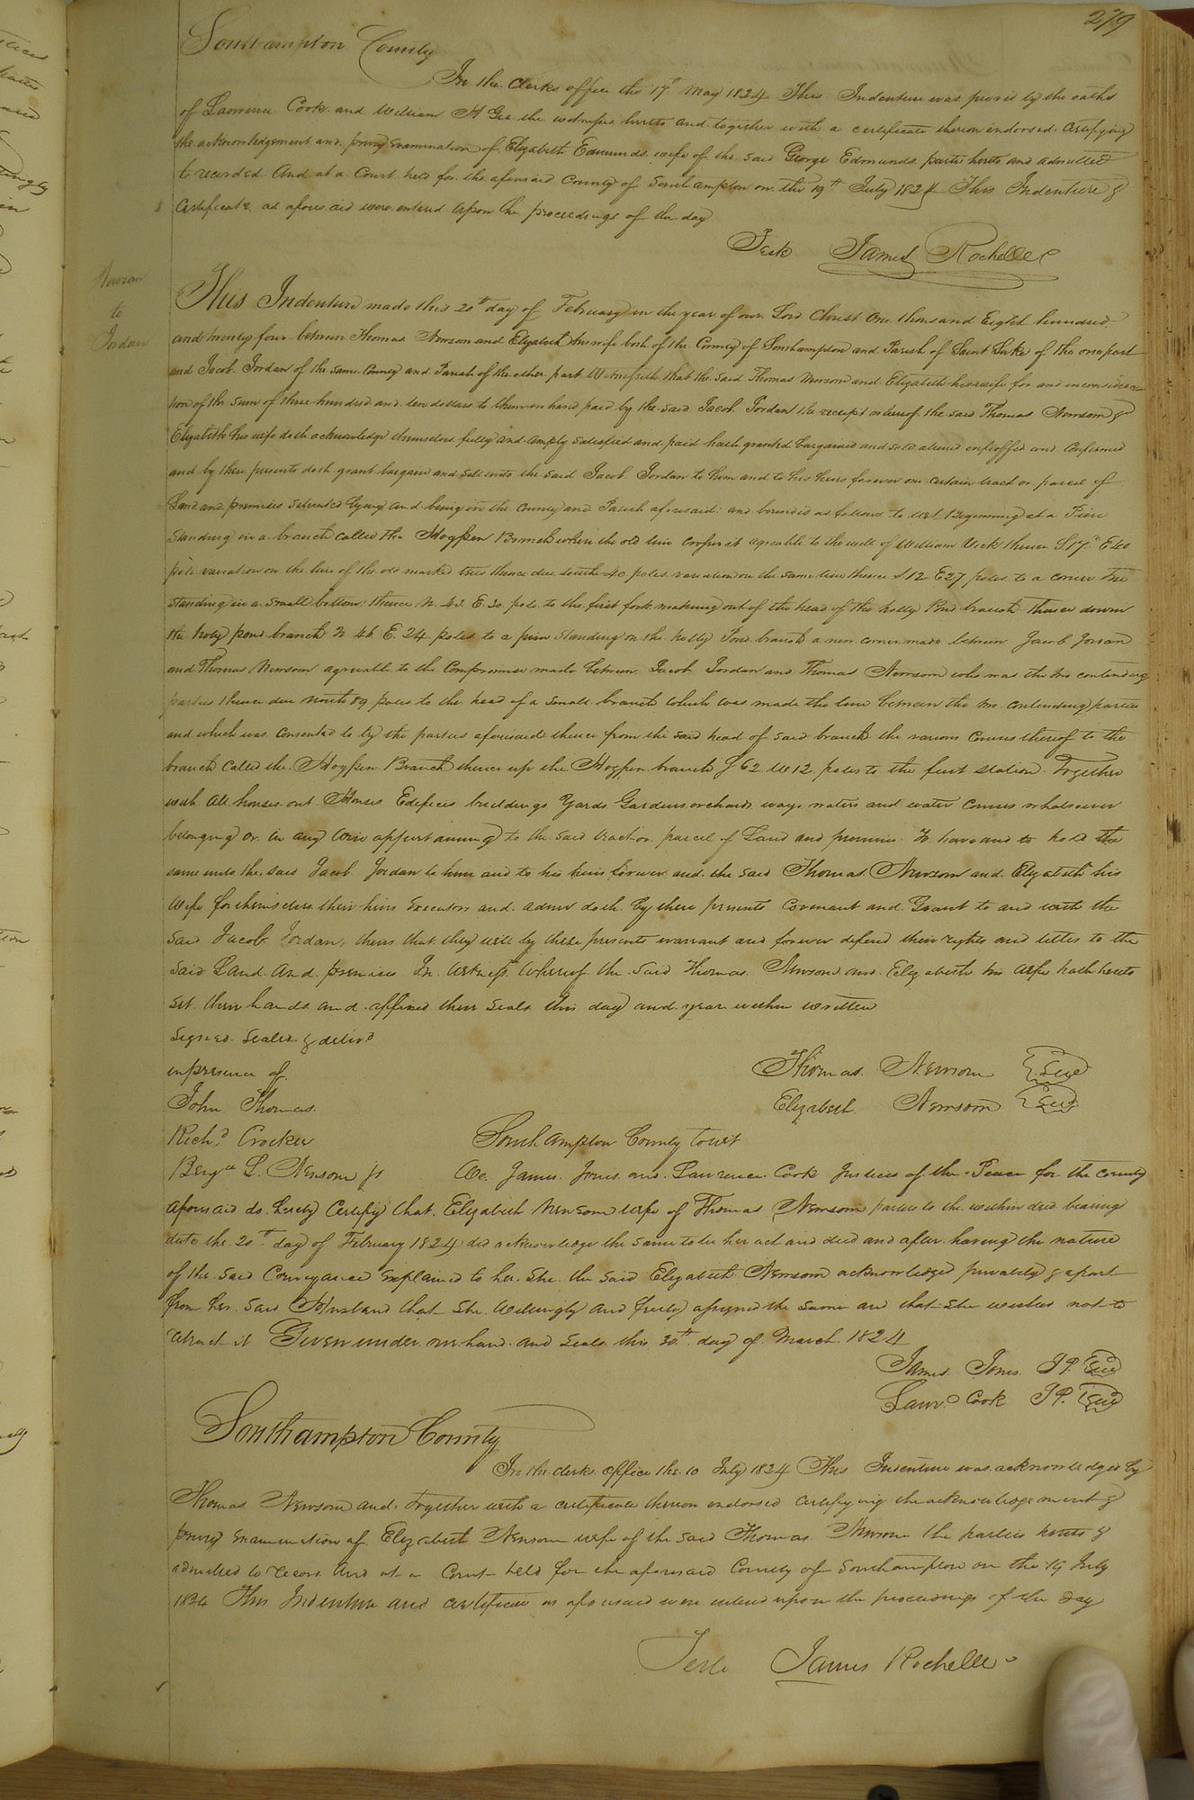 279
Southampton County
In the Clerks office the 17th May 1824 This Indenture was proved by the oaths
of Lawrence Cook and William H Gee the witnesses hereto and together with a certificate thereon endorsed certifying
the acknowledgement and privy examination of Elizabeth Edmunds wife of the said George Edmunds parties hereto and admitted
to recorded And at a Court held for the aforesaid County of Southampton on the 19th July 1824 This Indenture &
Certificate as aforesaid were entered upon the proceedings of the day
Teste James Rochelle
Newsom
to
Jordan
This Indenture made this 20th day of February in the year of our Lord Christ One thousand Eight hundred
and twenty four between Thomas Newsom and Elizabeth his wife both of the County of Southampton and Parish of Saint Luke of the one part
and Jacob Jordan of the same County and Parish of the other part Witnesseth that the said Thomas Newsom and Elizabeth his wife for and in considera
tion of the sum of three hundred and ten dollars to them in hand paid by the said Jacob Jordan the receipt whereof the said Thomas Newsom &
Elizabeth his wife doth acknowledge themselves fully and amply satisfied and paid hath granted bargained and sold aliened enfeoffed and Confirmed
and by these presents doth grant bargain and sell unto the said Jacob Jordan to him and to his heirs forever one certain tract or parcel of
Land and premises situated lying and being in the County and Parish aforesaid and bounded as follows to wit Beginning at a Pine
standing in a branch called the Hogpen Branch where the old line crosses it agreable to the will of William Vick thence S.17 E 40
pole variation on the line of the old marked trees thence due south 40 poles variation on the same line thence S 12 E 27 poles to a corner tree
standing in a small bottom thence N. 43. E. 30 pole to the first fork making out of the head of the holly Pond branch thence down
the holy pond branch N 46 E. 24 poles to a pine standing on the holly Pond branch a new corner made between Jacob Jordan
and Thomas Newsom agreable to the Compromise made between Jacob Jordan and Thomas Newsom who was the two contending
parties thence due north 89 poles to the head of a small branch which was made the line between the two contending parties
and which was consented to by the parties aforesaid thence from the said head of said branch the various courses thereof to the
branch called the Hogpen Branch thence up the Hogpen branch S 62 W 12 poles to the first station Together
with all houses out Houses Edifices buildings Yards Gardens orchards ways waters and water Courses whatsoever
belonging or in any wise appertaining to the said tract or parcel of Land and premises To have and to hold the
same unto the said Jacob Jordan to him and to his heirs forever and the said Thomas Newsom and Elizabeth his
wife for themselves their heirs Executors and admrs doth by these presents Covenant and Grant to and with the
said Jacob Jordan, theirs that they will by these presents warrant and forever defend their rights and titles to the
said Land and premises In Witness Whereof the said Thomas Newsom and Elizabeth his wife hath hereto
set their hands and affixed their seals this day and year within written
Signed Sealed & delivd
in presence of
Thomas Newsom Seal
John Thomas
Elizabeth Newsom Seal
Richd Crocker
Southampton County to wit
Benjn L. Newsom jr
We James Jones and Lawrence Cook Justices of the Peace for the County
aforesaid do hereby Certify that Elizabeth Newsom wife of Thomas Newsom parties to the within deed bearing
date the 20th day of February 1824 did acknowledge the same to be her act and deed and after having the nature
of the said Conveyance explained to her She the said Elizabeth Newsom acknowledged privately & apart
from her said Husband that she willingly and freely assigned the same and that she wishes not to
retract it Given under our hand and seals this 30th day of March 1824
James Jones J.P. Seal
Lawr. Cook J.P. Seal
Southampton County
In the clerks office the 10 July 1824 This Indenture was acknowledged by
Thomas Newsom and together with a certificate thereon endorsed certifying the acknowledgement &
privy examination of Elizabeth Newsom wife of the said Thomas Newsom the parties hereto &
admitted to record And at a Court held for the aforesaid County of Southampton on the 19 July
1824 This Indenture and certificate as aforesaid were entered upon the proceedings of the day
Teste James Rochelle